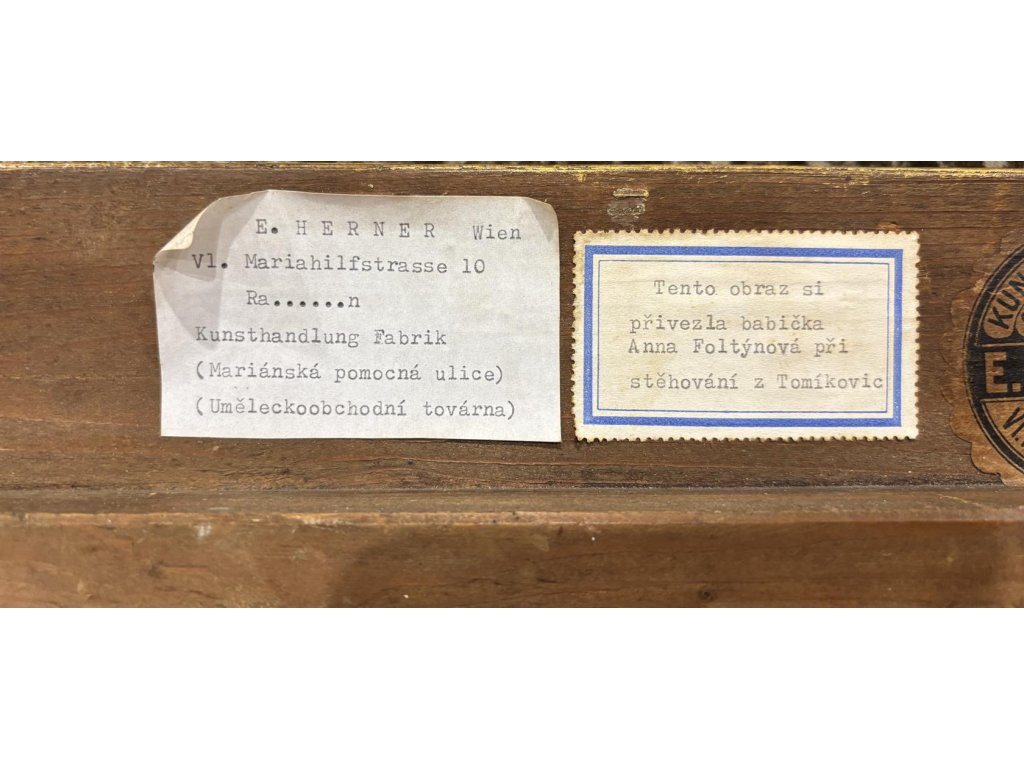 E. HERNER Wien
Vl. Mariahilfstrasse 10
Ra......n
Kunsthandlung Fabrik
(Mariánská pomocná ulice)
(Uměleckoobchodní továrna)
Tento obraz si
přivezla babička
Anna Foltýnová při
stěhování z Tomíkovic
KUN
E.